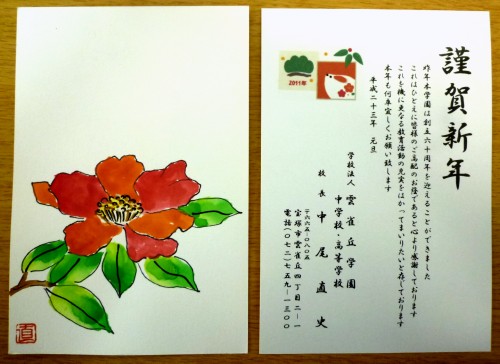 謹賀新年
昨年本学園は創立六十周年を迎えることができました
これはひとえに皆様のご高配のお蔭であると心より感謝しております
これを機に更なる教育活動の充実をはかってまいりたいと存じております
本年も何卒宜しくお願い致します
平成二十三年 元旦
2011年
学校法人 雲雀丘学園
中学校・高等学校
校長 中尾直史
〒665-0805
宝塚市雲雀丘四丁目二-一
電話(〇七二)七五九-一三〇〇